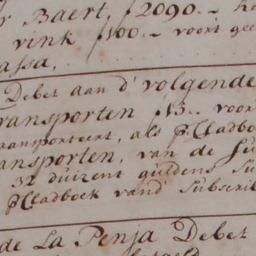 r Baert, ƒ2090.-
vink ƒ100.- voort gee
assa,
Debet aan d' volgende
ransporten ƒ13.. voor
ransporteert, als P. Cladbo
ansporten, van de
32 duizent guldens Su
P Cladboek vand' Subscrib
de La Penja Debet